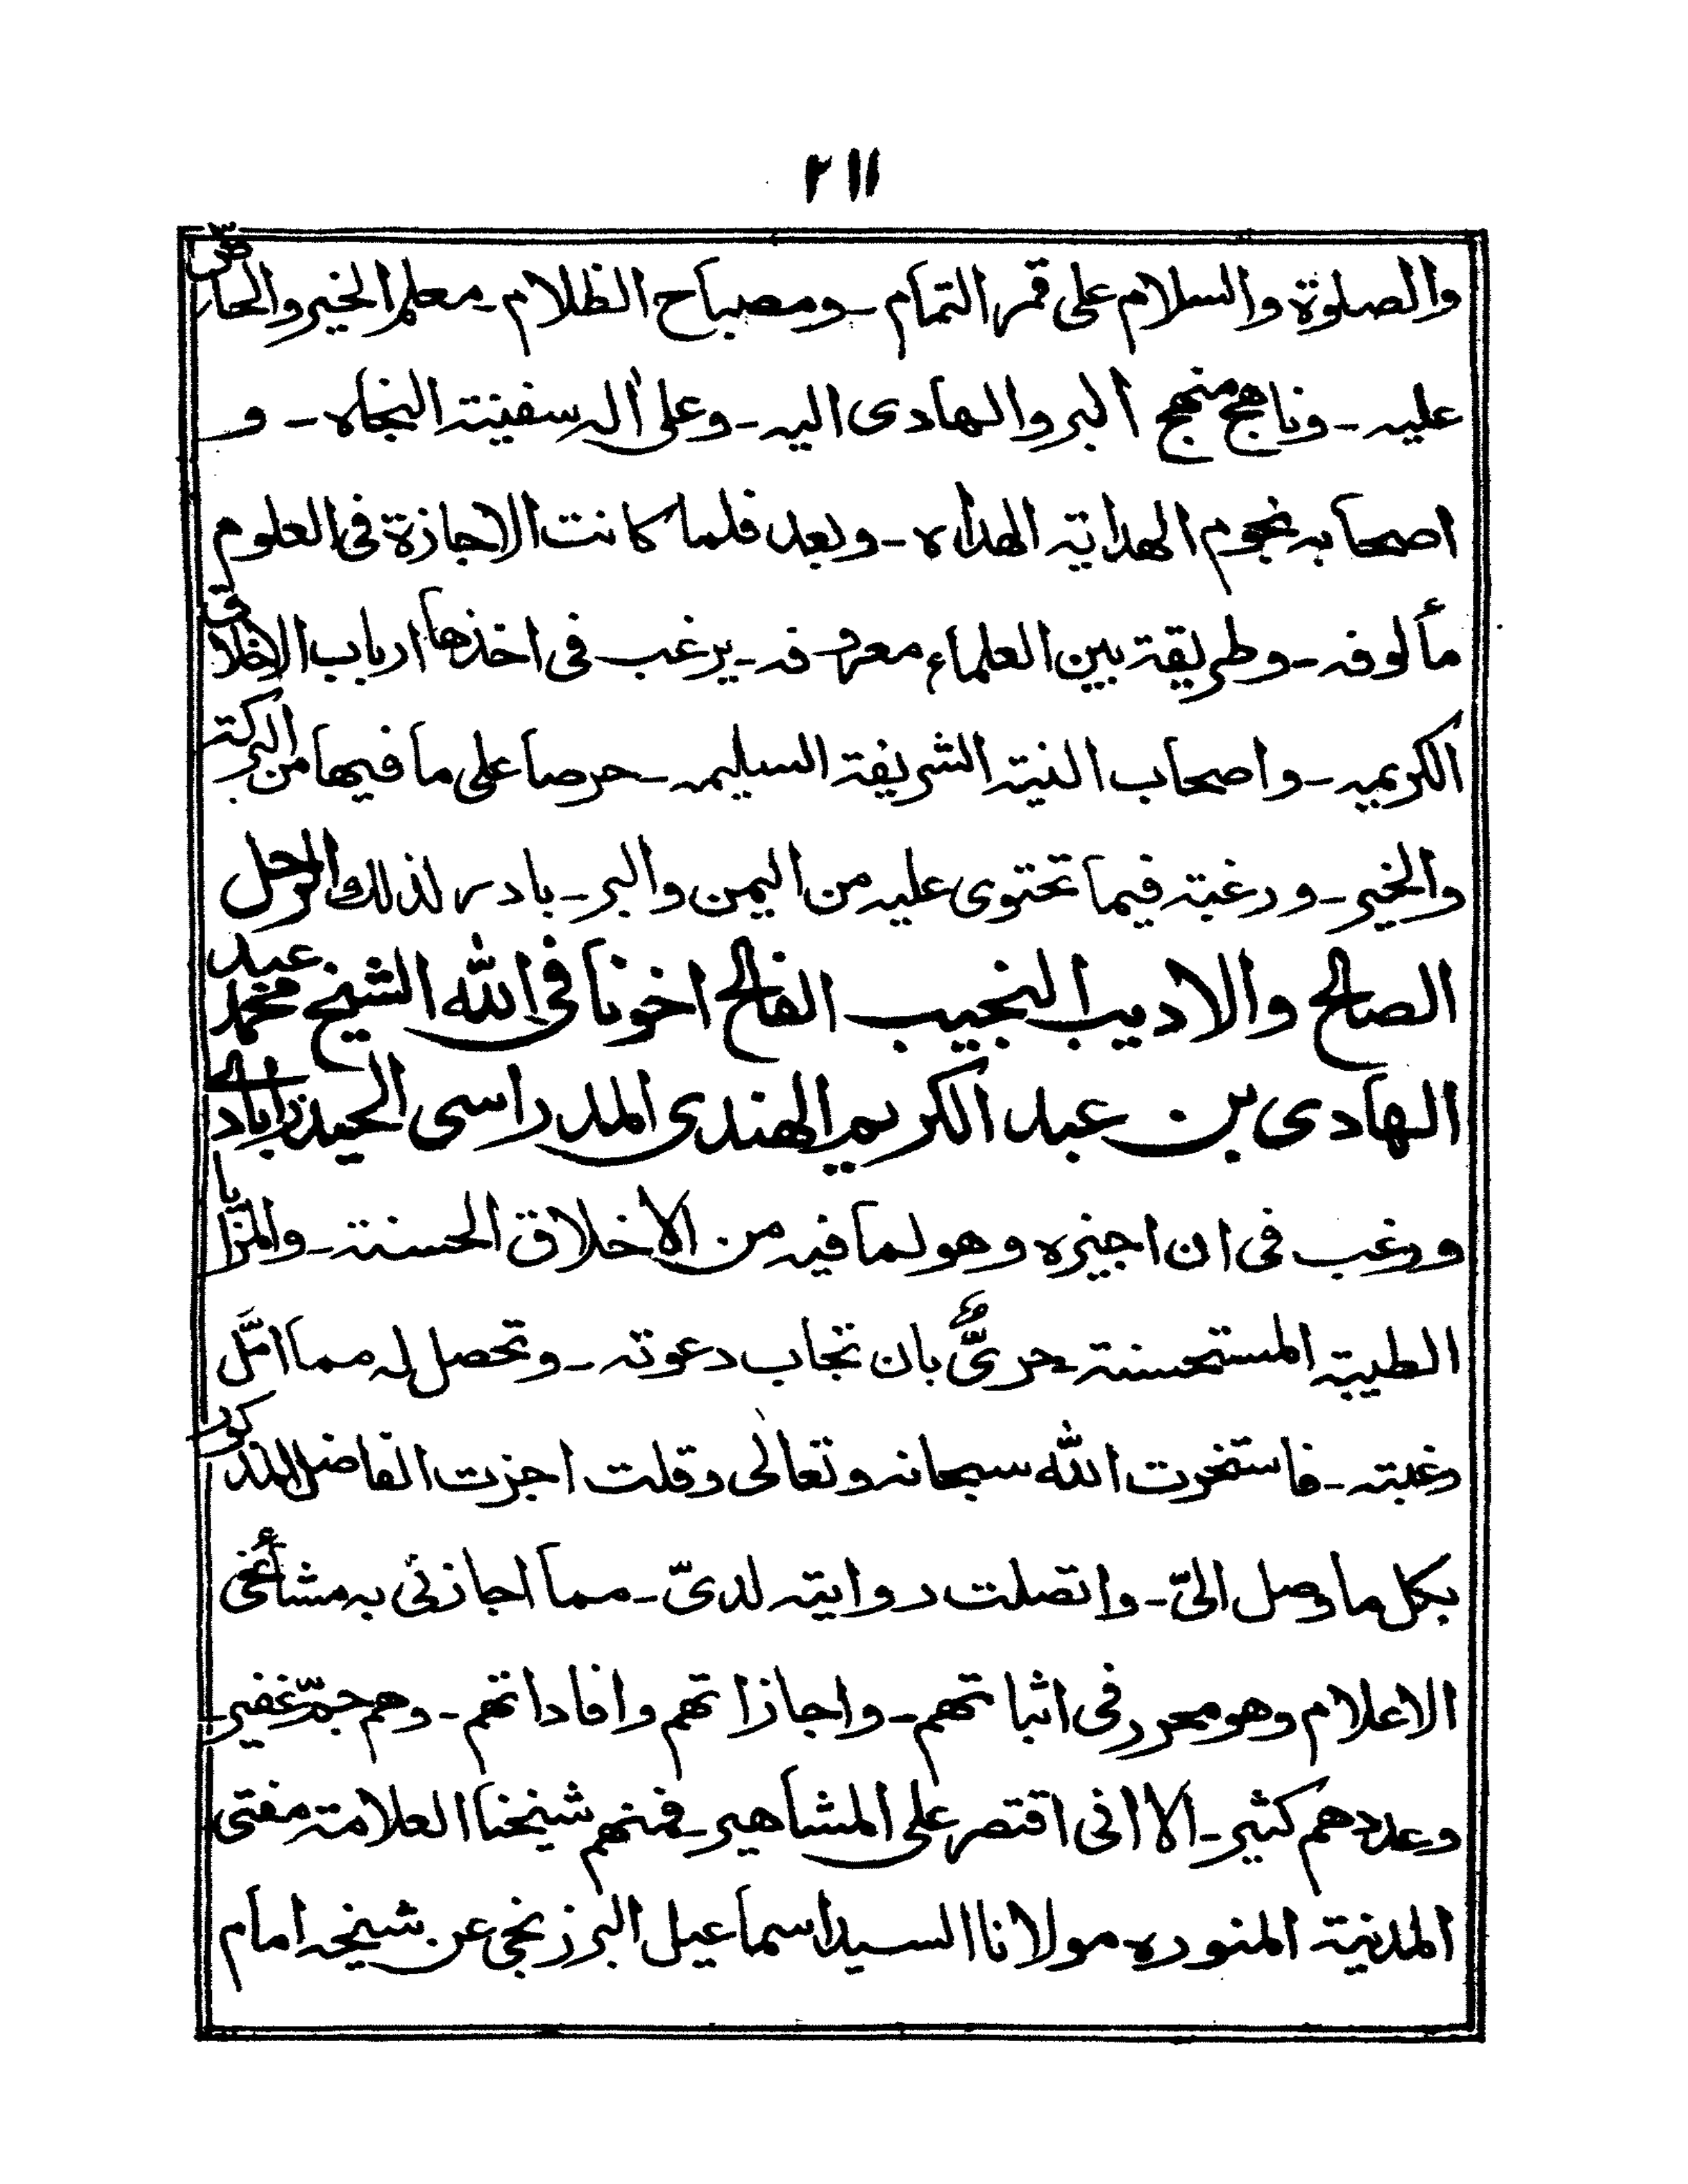 ٢١١
والصلوة والسلام على قمر التمام ـ ومصباح الظلام ـ معلم الخير والحاض
عليه ـ وناهج منهج البر والهادى اليه ـ وعلى اله سفينة النجاه ـ و
اصحابه نجوم الهداية الهداه ـ وبعد فلما كانت الاجازة فى العلوم
مألوفه ـ وطريقة بين العلماء معروفه ـ يرغب فى اخذها ارباب الاخلاق
الكريمه ـ واصحاب النية الشريفة السليمه ـ حرصا على ما فيها من البركة
والخير ـ ورغبة فيما تحتوى عليه من اليمن والبر ـ بادر لذلك الرجل
الصالح والاديب النجيب الفالح اخونا فى الله الشيخ محمد عبد
الهادى بن عبد الكريم الهندى المدراسى الحيدرابادى
ورغب فى ان اجيزه وهو لما فيه من الاخلاق الحسنة ـ والمزايا
الطيبة المستحسنة ـ حرىٌّ بان تجاب دعوته ـ وتحصل له مما امّل
رغبته ـ فاستخرت الله سبحانه وتعالى وقلت اجزت الفاضل المذكور
بكل ما وصل الىّ ـ واتصلت روايته لدىّ ـ مما اجازنى به مشائخى
الاعلام وهو محرر فى اثباتهم ـ واجازاتهم وافاداتهم ـ وهم جمّ غفير ـ
وعددهم كثير ـ الا انى اقتصر على المشاهير ـ فمنهم شيخنا العلامة مفتى
المدينة المنوره مولانا السيد اسماعيل البرزنجى عن شيخه امام